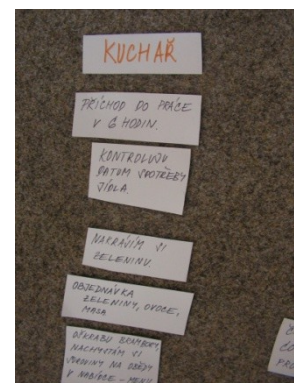 KUCHAŘ
PŘÍCHOD DO PRÁCE
V 6 HODIN.
KONTROLUJU
DATUM SPOTŘEBY
JÍDLA.
NAKRÁJÍM SI
ZELENINU.
OBJEDNÁVKA
ZELENINY, OVOCE,
MASA
OŠKRABU BRAMBORY,
NACHYSTÁM SI
SUROVINY NA OBĚDY
V NABÍDCE - MENU